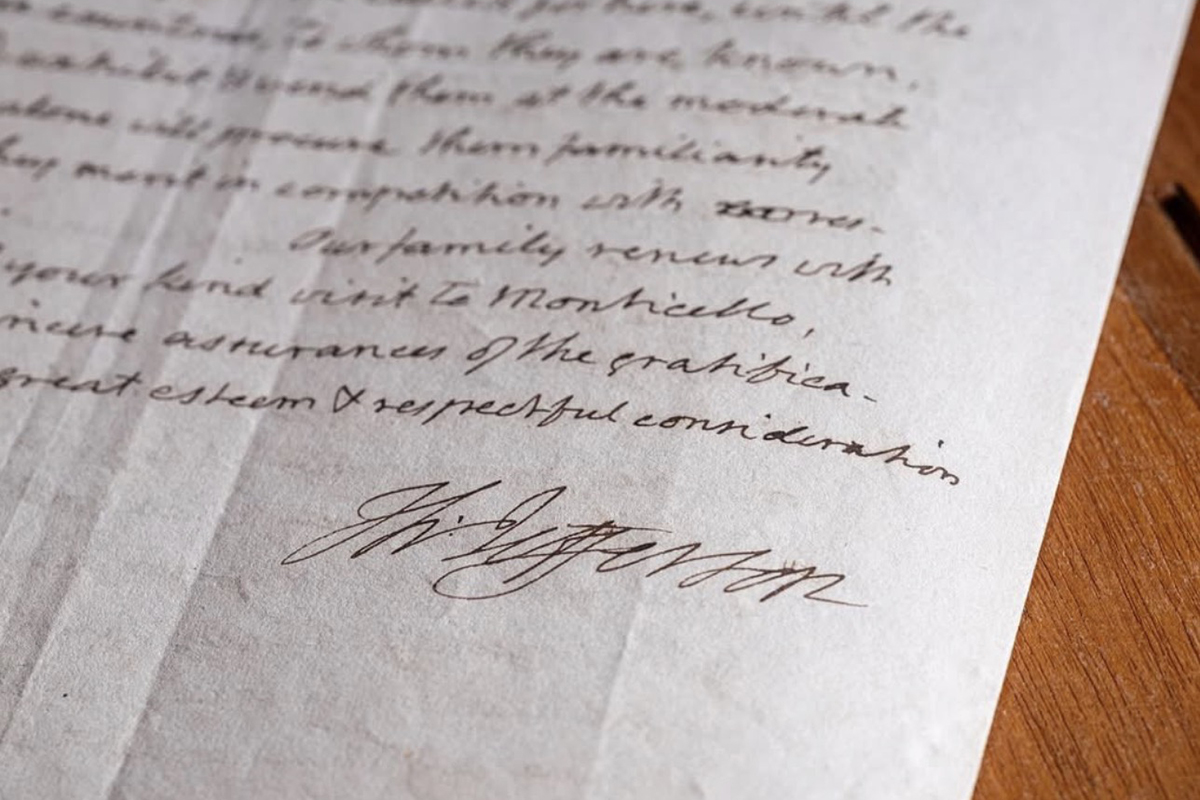 until the
to whom they are known,
send them at the moderate
alone will procure them familiarity
merit in competition with
Our family renews with
your kind visit to Monticello,
assurances of the gratifica-
great esteem & respectful consideration
Th: Jefferson